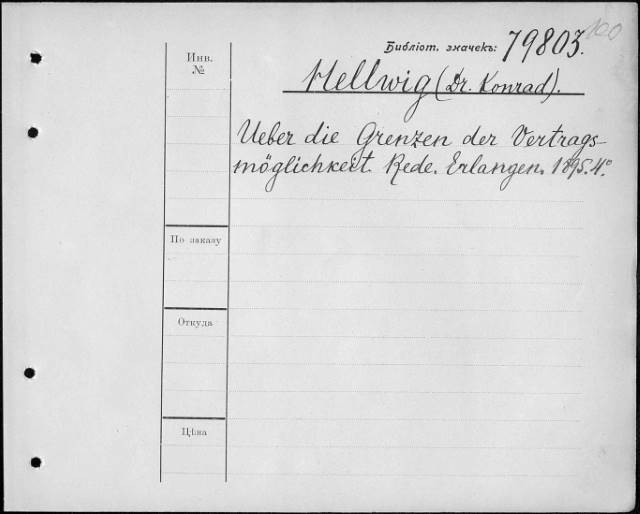 100
Библіот. значекъ: 79803.
Инв.
№
Hellwig (Dr. Konrad).
Ueber die Grenzen der Vertrags-
möglichkeit. Rede. Erlangen. 1895. 4°.
По заказу
Откуда
Цѣна